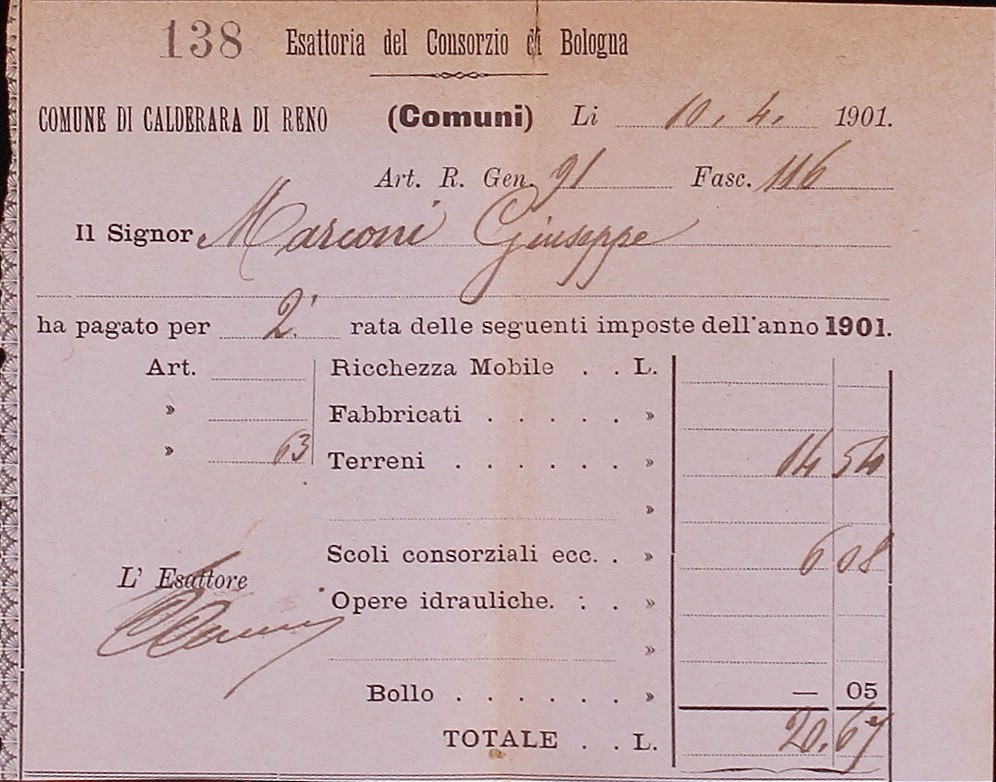 138 Esattoria del Consorzio di Bologna
COMUNE DI CALDERARA DI RENO (Comuni) Li 10. 4. 1901.
Art. R. Gen. 91 Fasc. 116
Il Signor Marconi Giuseppe
ha pagato per 2ª rata delle seguenti imposte dell'anno 1901.
Art. Ricchezza Mobile . . L.
» Fabbricati . . . . . »
» 63 Terreni . . . . . . » 14 54
»
Scoli consorziali ecc. . » 6 08
L' Esattore
Opere idrauliche. . . »
»
Bollo . . . . . . » — 05
TOTALE . . L. 20. 67